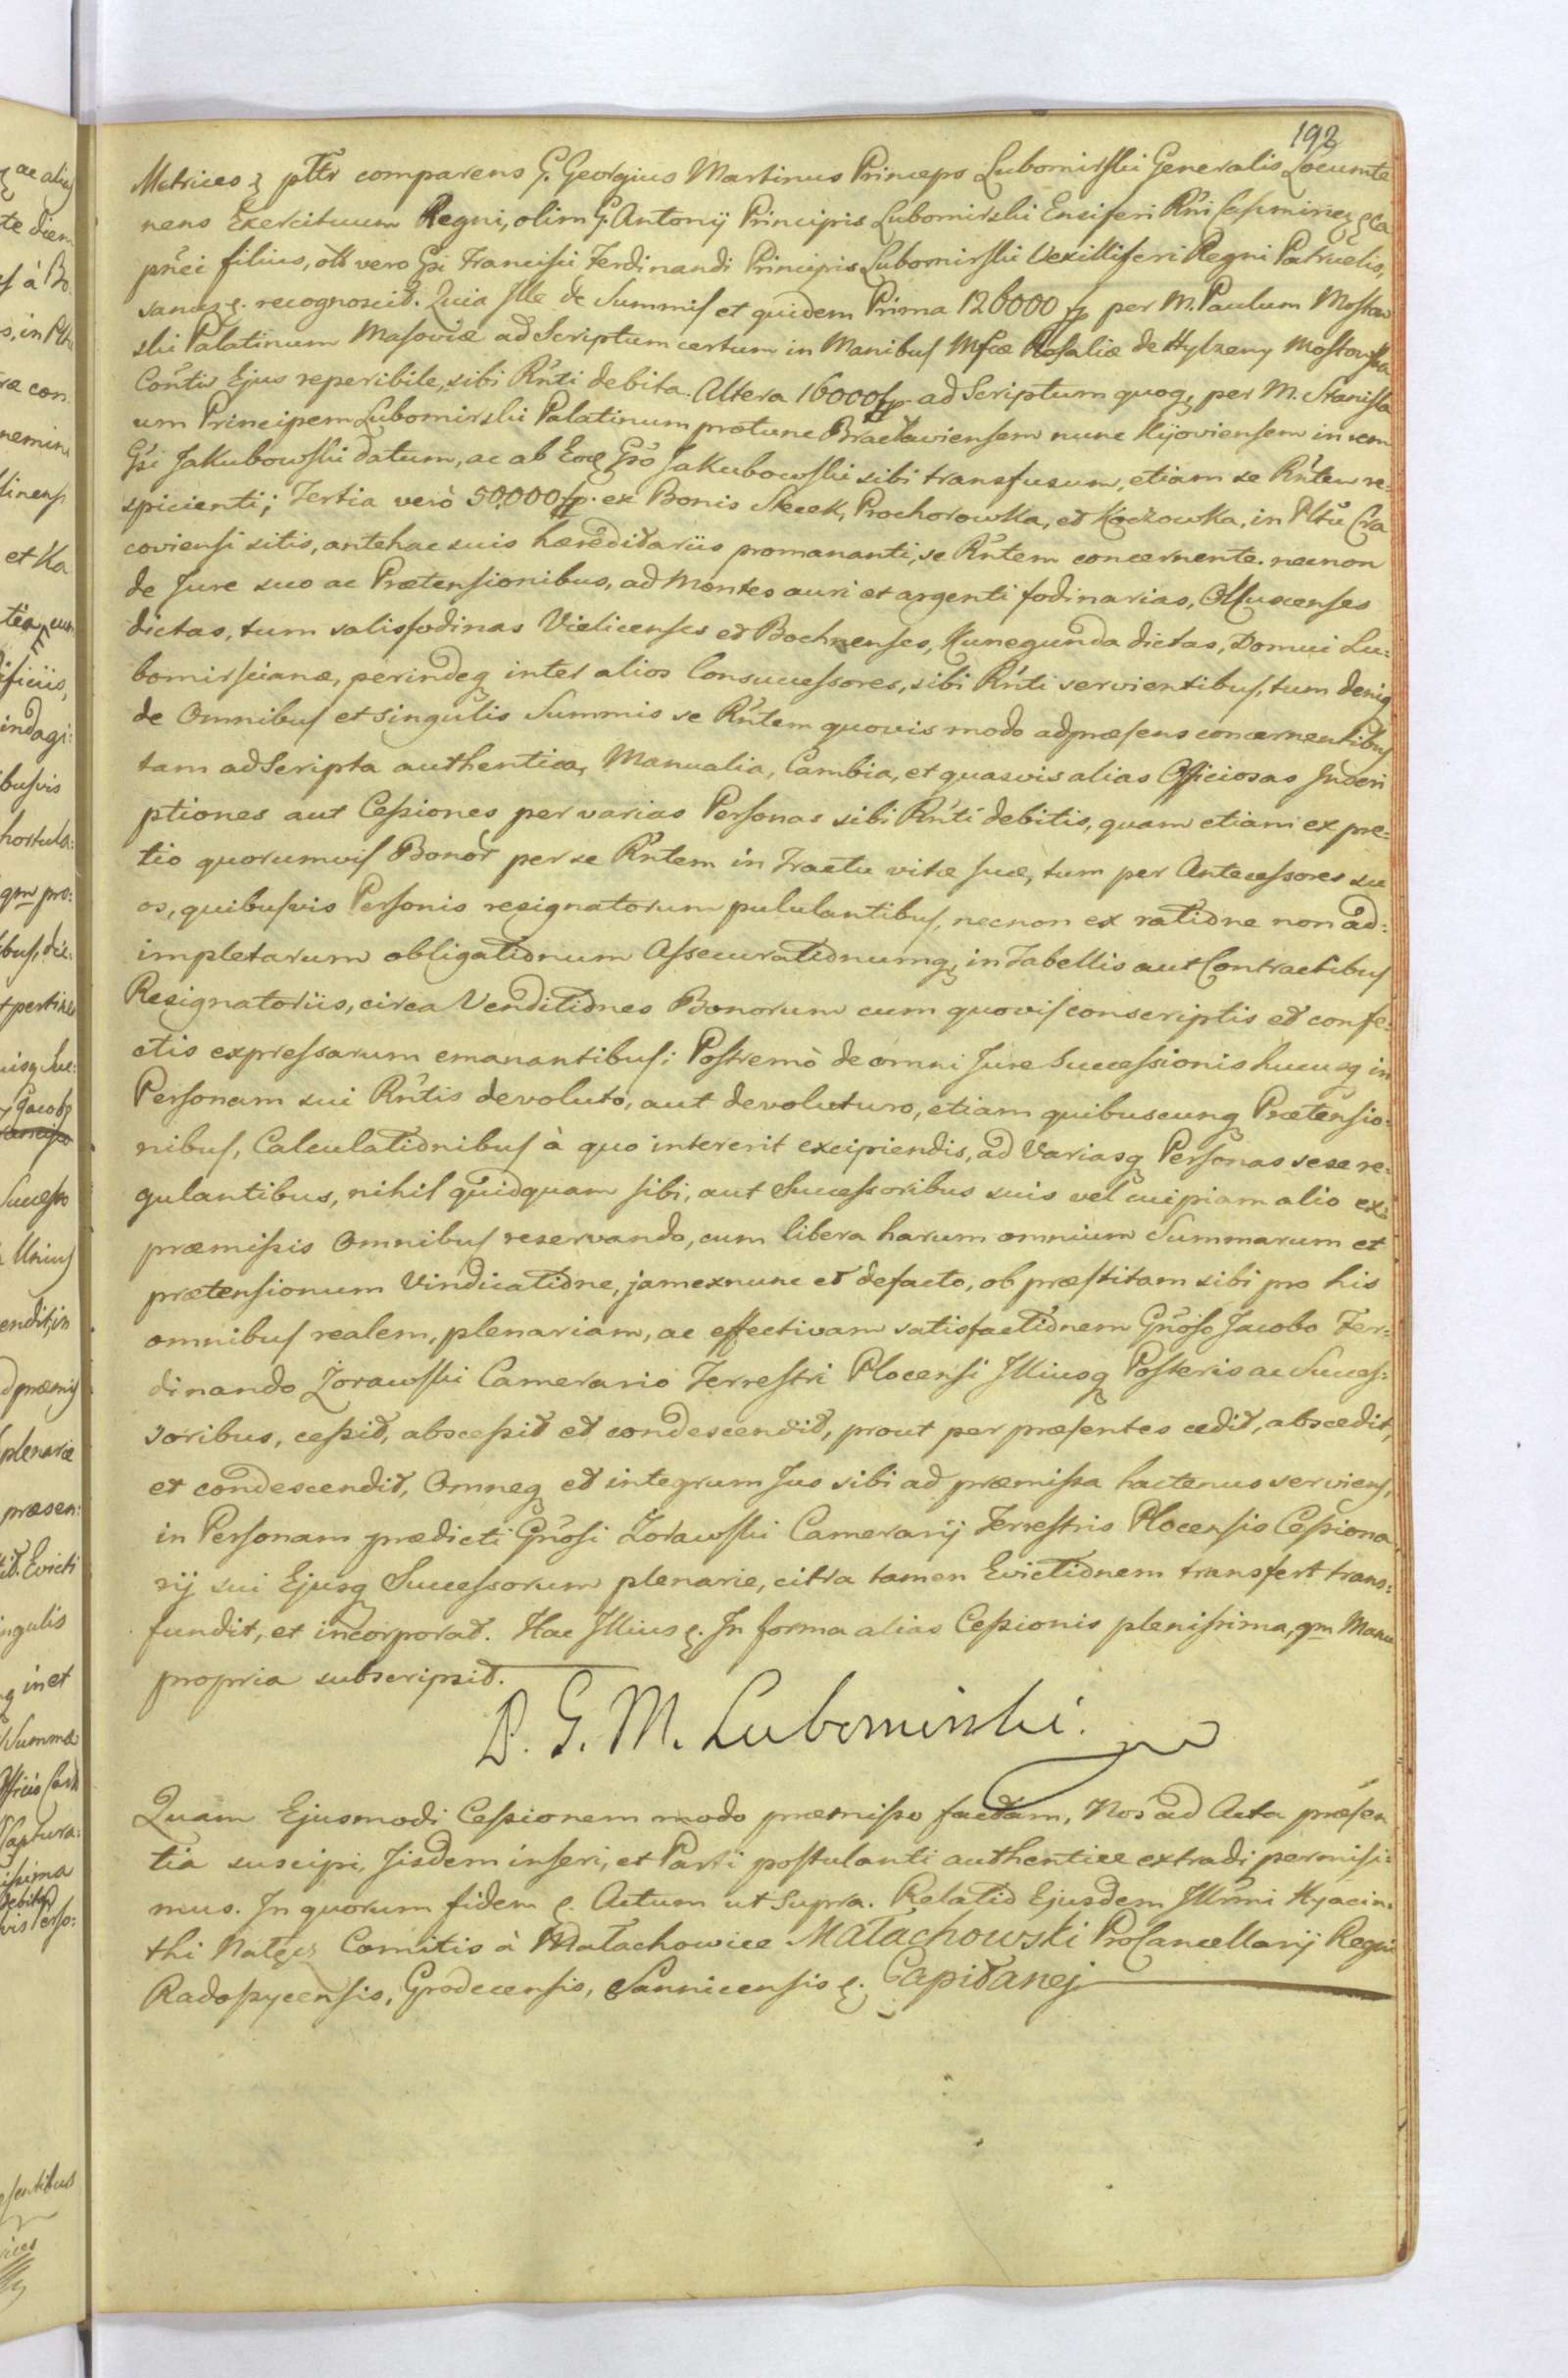 192
Metrices ꝫ pttr comparens G. Georgius Martinus Princeps Lubomirski Generalis Locumte
nens Exercituum Regni, olim G. Antonij Principis Lubomirski Ensiferi Rni
pnei filius, ott vero Gsi Francisci Ferdinandi Principis Lubomirski Vexilliferi Regni Patruelis,
sanus ę. recognoscit. Quia Ille de Summis et quidem Prima 126000 fp per M. Paulum Mostow
ski Palatinum Masoviæ ad Scriptum certum in Manibus Mfcæ Rosaliæ de Hylzeny Mostowska
Contis Ejus reperibile, sibi Rnti debita. Altera 16000 fp. ad Scriptum quoqꝫ per M. Stanisla
um Principem Lubomirski Palatinum protunc Braclaviensem nunc Kijoviensem in rem
Gsi Jakubowski datum, ac ab Eoꝫ Gso Jakubowski sibi transfusum, etiam se Rntem re-
spicienti; Tertia verò 50,000 fp. ex Bonis Siecek, Prochorowka, et Koczowka, in Pltu Cra
coviensi sitis, antehac suis hæreditariis promananti, se Rntem concernente. necnon
de Jure suo ac Prætensionibus, ad Montes auri et argenti fodinarias, Olkuscenses
dictas, tum salisfodinas Vielicenses et Bochnenses, Kunegunda dictas, Domui Lu:
bomirscianæ, perindeqꝫ inter alios Consuccessores, sibi Rnti servientibus, tum deniqꝫ
de Omnibus et singulis Summis se Rntem quovis modo adpræsens concernentibus
tam ad Scripta authentica, Manualia, Cambia, et quasvis alias Officiosas Inscri
ptiones aut Cessiones per varias Personas sibi Rnti debitis, quam etiam ex pre-
tio quorumvis Bonor per se Rntem in Tractu vitæ suæ, tum per Antecessores su
os, quibusvis Personis resignatorum pululantibus, necnon ex ratione non ad:
impletarum obligationum Assecurationumqꝫ in Tabellis aut Contractibus
Resignatoriis, circa Venditiones Bonorum cum quovis conscriptis et confe:
ctis expressarum emanantibus; Postremò de omni Jure Successionis hucusqꝫ in
Personam sui Rntis devoluto, aut devoluturo, etiam quibuscunqꝫ Prætensio:
nibus, Calculationibus à quo intererit excipiendis, ad Variasqꝫ Personas sese re:
gulantibus, nihil quidquam sibi, aut Successoribus suis vel cuipiam alio ex:
præmissis Omnibus reservando, cum libera harum omnium Summarum et
prætensionum Vindicatione, jam exnunc et defacto, ob præstitam sibi pro his
omnibus realem, plenariam, ac effectivam satisfactionem Gnoso Jacobo Fer:
dinando Żorawski Camerario Terrestri Plocensi Illiusqꝫ Posteris ac Succes:
soribus, cessit, abscessit et condescendit, prout per præsentes cedit, abscedit,
et condescendit, Omneqꝫ et integrum Jus sibi ad præmissa hactenus serviens,
in Personam prædicti Gnosi Żorawski Camerarij Terrestris Plocensis Cessiona
rij sui Ejusqꝫ Successorum plenarie, citra tamen Evictionem transfert trans:
fundit, et incorporat. Hac Illius ę. In forma alias Cessionis plenissima, qm Manu
propria subscripsit.
P. G. M. Lubomirski.
Quam Ejusmodi Cessionem modo præmisso factam, Nos ad Acta præsen
tia suscipi, Iisdem inseri, et Parti postulanti authentice extradi permisi:
mus. In quorum fidem ę. Actum ut Supra. Relatio Ejusdem Illrmi Hyacin:
thi Nałęcz Comitis à Małachowice Małachowski Procancellarij Regni
Radoszycensis, Grodecensis, Sannicensis ę. Capitanej